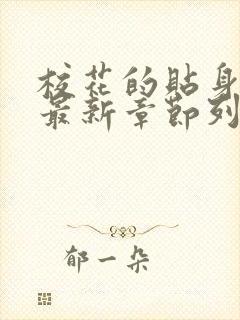 校花的貼身
最新章節列
郁一朵